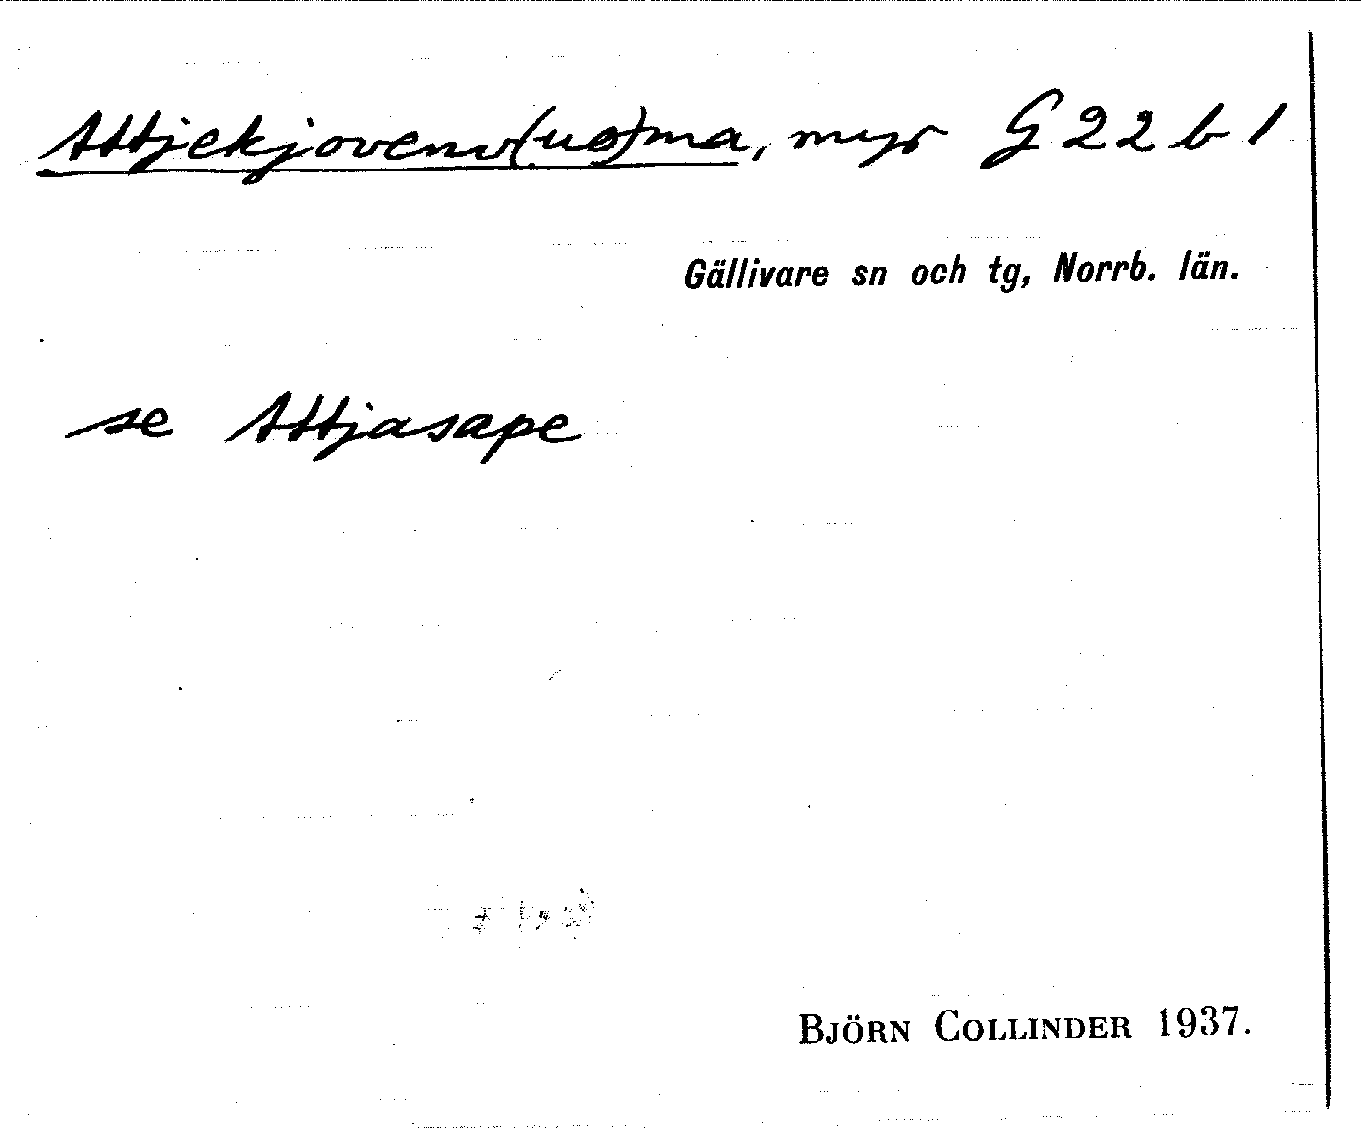 Attjekjovenv(uo)ma, myr G 22 b 1
Gällivare sn och tg, Norrb. län.
se Attjasape
BJÖRN COLLINDER 1937.